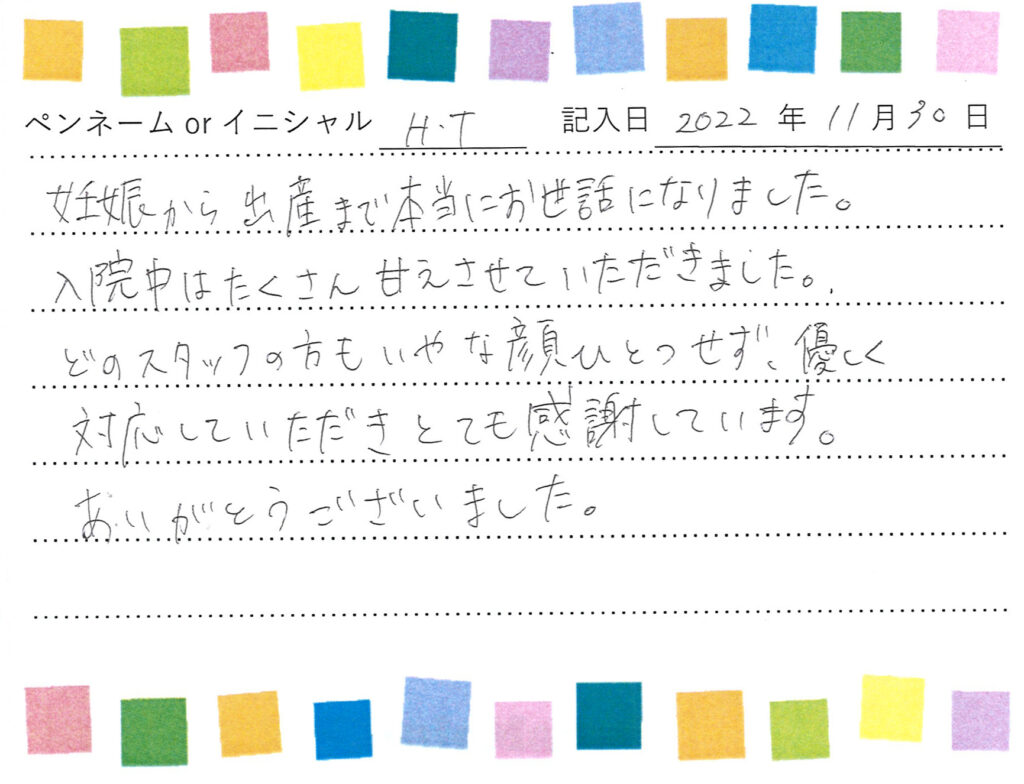 ペンネーム or イニシャル H.T 記入日 2022 年 11 月 30 日
妊娠から出産まで本当にお世話になりました。
入院中はたくさん甘えさせていただきました。
どのスタッフの方もいやな顔ひとつせず、優しく
対応していただきとても感謝しています。
ありがとうございました。